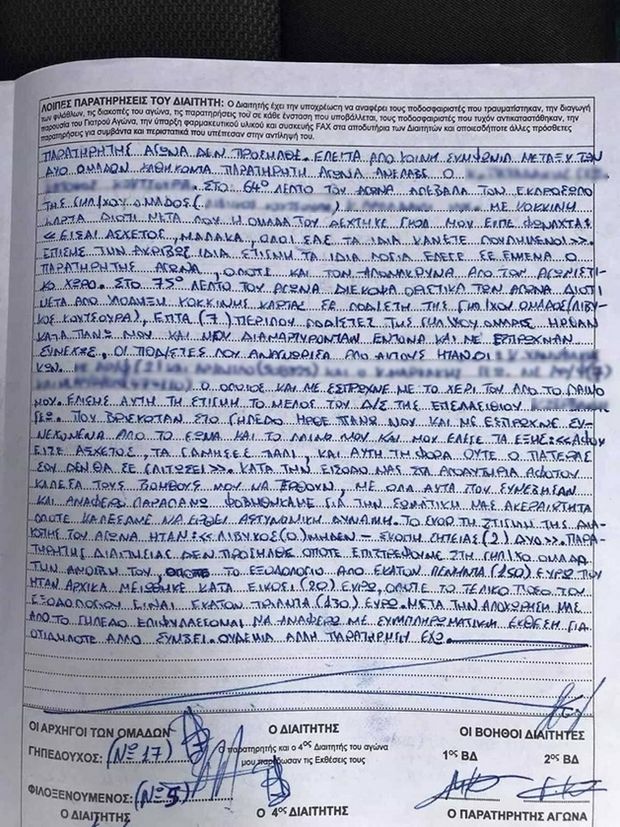 ΛΟΙΠΕΣ ΠΑΡΑΤΗΡΗΣΕΙΣ ΤΟΥ ΔΙΑΙΤΗΤΗ: Ο Διαιτητής έχει την υποχρέωση να αναφέρει τους ποδοσφαιριστές που τραυματίστηκαν, την διαγωγή
των φιλάθλων, τις διακοπές του αγώνα, τις παρατηρήσεις του σε κάθε ένσταση που υποβάλλεται, τους ποδοσφαιριστές που τυχόν αντικαταστάθηκαν, την
παρουσία του Γιατρού Αγώνα, την ύπαρξη φαρμακευτικού υλικού και συσκευής FAX στα αποδυτήρια των Διαιτητών και οποιεσδήποτε άλλες πρόσθετες
παρατηρήσεις για συμβάντα και περιστατικά που υπέπεσαν στην αντίληψή του.
ΠΑΡΑΤΗΡΗΤΗΣ ΑΓΩΝΑ ΔΕΝ ΠΡΟΣΗΛΘΕ. ΕΠΕΙΤΑ ΑΠΟ ΚΟΙΝΗ ΣΥΜΦΩΝΙΑ ΜΕΤΑΞΥ ΤΩΝ
ΔΥΟ ΟΜΑΔΩΝ ΚΑΘΗΚΟΝΤΑ ΠΑΡΑΤΗΡΗΤΗ ΑΓΩΝΑ ΑΝΕΛΑΒΕ Ο
ΣΤΟ 64º ΛΕΠΤΟ ΤΟΥ ΑΓΩΝΑ ΑΠΕΒΑΛΑ ΤΟΝ ΕΚΠΡΟΣΩΠΟ
ΤΗΣ ΓΗΠ/ΧΟΥ ΟΜΑΔΟΣ ( ΜΕ ΚΟΚΚΙΝΗ
ΚΑΡΤΑ ΔΙΟΤΙ ΜΕΤΑ ΠΟΥ Η ΟΜΑΔΑ ΤΟΥ ΔΕΧΤΗΚΕ ΓΚΟΛ ΜΟΥ ΕΙΠΕ ΦΩΝΑΧΤΑ
<<ΕΙΣΑΙ ΑΣΧΕΤΟΣ, ΜΑΛΑΚΑ, ΟΛΟΙ ΣΑΣ ΤΑ ΙΔΙΑ ΚΑΝΕΤΕ ΠΟΥΛΗΜΕΝΟΙ>>.
ΕΠΙΣΗΣ ΤΗΝ ΑΚΡΙΒΩΣ ΙΔΙΑ ΣΤΙΓΜΗ ΤΑ ΙΔΙΑ ΛΟΓΙΑ ΕΛΕΓΕ ΣΕ ΕΜΕΝΑ Ο
ΠΑΡΑΤΗΡΗΤΗΣ ΑΓΩΝΑ, ΟΠΟΤΕ ΚΑΙ ΤΟΝ ΑΠΟΜΑΚΡΥΝΑ ΑΠΟ ΤΟΝ ΑΓΩΝΙΣΤΙ-
ΚΟ ΧΩΡΟ. ΣΤΟ 75º ΛΕΠΤΟ ΤΟΥ ΑΓΩΝΑ ΔΙΕΚΟΨΑ ΟΡΙΣΤΙΚΑ ΤΟΝ ΑΓΩΝΑ ΔΙΟΤΙ
ΜΕΤΑ ΑΠΟ ΥΠΟΔΕΙΞΗ ΚΟΚΚΙΝΗΣ ΚΑΡΤΑΣ ΣΕ ΠΟΔ/ΣΤΗ ΤΗΣ ΓΗΠ/ΧΟΥ ΟΜΑΔΟΣ (ΛΙΒΥ-
ΚΟΣ ΚΟΥΤΣΟΥΡΑ), ΕΠΤΑ (7) ΠΕΡΙΠΟΥ ΠΟΔ/ΣΤΕΣ ΤΗΣ ΓΗΠ/ΧΟΥ ΟΜΑΔΟΣ ΗΡΘΑΝ
ΚΑΤΑ ΠΑΝΩ ΜΟΥ ΚΑΙ ΜΟΥ ΔΙΑΜΑΡΤΥΡΟΝΤΑΝ ΕΝΤΟΝΑ ΚΑΙ ΜΕ ΕΣΠΡΩΧΝΑΝ
ΣΥΝΕΧΩΣ. ΟΙ ΠΟΔ/ΣΤΕΣ ΠΟΥ ΑΝΑΓΝΩΡΙΣΑ ΑΠΟ ΑΥΤΟΥΣ ΗΤΑΝ ΟΙ
Ο ΟΠΟΙΟΣ ΚΑΙ ΜΕ ΕΣΠΡΩΧΝΕ ΜΕ ΤΟ ΧΕΡΙ ΤΟΥ ΑΠΟ ΤΟ ΛΑΙΜΟ
ΜΟΥ. ΕΠΙΣΗΣ ΑΥΤΗ ΤΗ ΣΤΙΓΜΗ ΤΟ ΜΕΛΟΣ ΤΟΥ Δ/Σ ΤΗΣ ΕΠΣ ΛΑΣΙΘΙΟΥ
ΠΟΥ ΒΡΙΣΚΟΤΑΝ ΣΤΟ ΓΗΠΕΔΟ ΗΡΘΕ ΠΑΝΩ ΜΟΥ ΚΑΙ ΜΕ ΕΣΠΡΩΧΝΕ ΣΥ-
ΝΕΧΟΜΕΝΑ ΑΠΟ ΤΟ ΣΩΜΑ ΚΑΙ ΤΟ ΛΑΙΜΟ ΜΟΥ ΚΑΙ ΜΟΥ ΕΛΕΓΕ ΤΑ ΕΞΗΣ:<<ΑΦΟΥ
ΕΙΣΕ ΑΣΧΕΤΟΣ, ΤΑ ΓΑΜΗΣΕΣ ΠΑΛΙ, ΚΑΙ ΑΥΤΗ ΤΗ ΦΟΡΑ ΟΥΤΕ Ο ΠΑΤΕΡΑΣ
ΣΟΥ ΔΕΝ ΘΑ ΣΕ ΓΛΙΤΩΣΕΙ>>. ΚΑΤΑ ΤΗΝ ΕΙΣΟΔΟ ΜΑΣ ΣΤΑ ΑΠΟΔΥΤΗΡΙΑ ΑΦΟΤΟΥ
ΚΑΛΕΣΑ ΤΟΥΣ ΒΟΗΘΟΥΣ ΜΟΥ ΝΑ ΕΡΘΟΥΝ, ΜΕ ΟΛΑ ΑΥΤΑ ΠΟΥ ΣΥΝΕΒΗΣΑΝ
ΚΑΙ ΑΝΑΦΕΡΩ ΠΑΡΑΠΑΝΩ ΦΟΒΗΘΗΚΑΜΕ ΓΙΑ ΤΗΝ ΣΩΜΑΤΙΚΗ ΜΑΣ ΑΚΕΡΑΙΟΤΗΤΑ
ΟΠΟΤΕ ΚΑΛΕΣΑΜΕ ΝΑ ΕΡΘΕΙ ΑΣΤΥΝΟΜΙΚΗ ΔΥΝΑΜΗ. ΤΟ ΣΚΟΡ ΤΗ ΣΤΙΓΜΗ ΤΗΣ ΔΙΑ-
ΚΟΠΗΣ ΤΟΥ ΑΓΩΝΑ ΗΤΑΝ:<<ΛΙΒΥΚΟΣ (0) ΜΗΔΕΝ - ΣΚΟΠΗ ΣΗΤΕΙΑΣ (2) ΔΥΟ>>. ΠΑΡΑ-
ΤΗΡΗΤΗΣ ΔΙΑΙΤΗΣΙΑΣ ΔΕΝ ΠΡΟΣΗΛΘΕ ΟΠΟΤΕ ΕΠΙΣΤΡΕΨΑΜΕ ΣΤΗ ΓΗΠ/ΧΟ ΟΜΑΔΑ
ΤΗΝ ΑΜΟΙΒΗ ΤΟΥ, ΤΟ ΕΞΟΔΟΛΟΓΙΟ ΑΠΟ ΕΚΑΤΟΝ ΠΕΝΗΝΤΑ (150) ΕΥΡΩ ΠΟΥ
ΗΤΑΝ ΑΡΧΙΚΑ ΜΕΙΩΘΗΚΕ ΚΑΤΑ ΕΙΚΟΣΙ (20) ΕΥΡΩ, ΟΠΟΤΕ ΤΟ ΤΕΛΙΚΟ ΠΟΣΟ ΤΟΥ
ΕΞΟΔΟΛΟΓΙΟΥ ΕΙΝΑΙ ΕΚΑΤΟΝ ΤΡΙΑΝΤΑ (130) ΕΥΡΩ. ΜΕΤΑ ΤΗΝ ΑΠΟΧΩΡΗΣΗ ΜΑΣ
ΑΠΟ ΤΟ ΓΗΠΕΔΟ ΕΠΙΦΥΛΑΣΣΟΜΑΙ ΝΑ ΑΝΑΦΕΡΩ ΜΕ ΣΥΜΠΛΗΡΩΜΑΤΙΚΗ ΕΚΘΕΣΗ ΓΙΑ
ΟΤΙΔΗΠΟΤΕ ΑΛΛΟ ΣΥΜΒΕΙ. ΟΥΔΕΜΙΑ ΑΛΛΗ ΠΑΡΑΤΗΡΗΣΗ ΕΧΩ.
ΟΙ ΑΡΧΗΓΟΙ ΤΩΝ ΟΜΑΔΩΝ Ο ΔΙΑΙΤΗΤΗΣ ΟΙ ΒΟΗΘΟΙ ΔΙΑΙΤΗΤΕΣ
ΓΗΠΕΔΟΥΧΟΣ: (Nº 17) Ο παρατηρητής και ο 4ος Διαιτητής του αγώνα 1ος ΒΔ 2ος ΒΔ
μου παρέδωσαν τις Εκθέσεις τους
ΦΙΛΟΞΕΝΟΥΜΕΝΟΣ: (Nº 5)
Ο ΔΙΑΙΤΗΤΗΣ Ο 4ος ΔΙΑΙΤΗΤΗΣ Ο ΠΑΡΑΤΗΡΗΤΗΣ ΑΓΩΝΑ